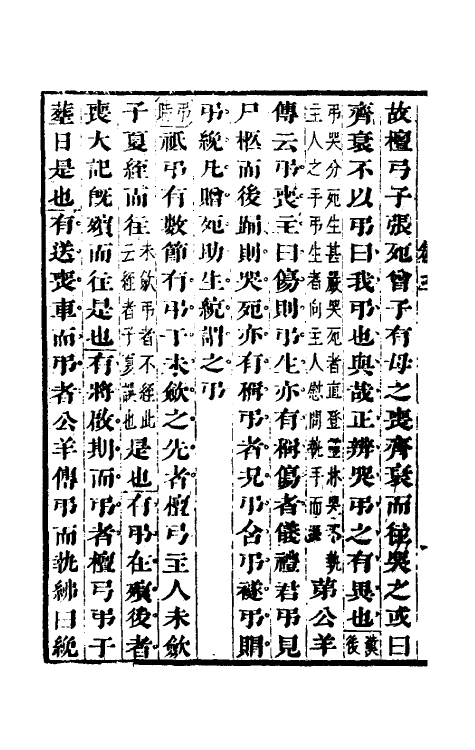 故檀弓子張死曾子有母之喪齊衰而往哭之或曰
齊衰不以弔曰我弔也與哉正辨哭弔之有異也漢後
弔哭分死生甚嚴哭死者直登堂牀哭不執
主人之手弔生者向主人慰問執手而退第公羊
傳云弔喪主曰傷則弔生亦有稱傷者儀禮君弔見
尸柩而後踊則哭死亦有稱弔者況弔含弔襚弔賵
弔統凡贈死助生統謂之弔
弔時祇弔有數節有弔于未斂之先者檀弓主人未斂
子夏絰而往未斂弔者不絰此云絰者子夏誤也是也有弔在殯後者
喪大記旣殯而往是也有將啟期而弔者檀弓弔于
葬日是也有送喪車而弔者公羊傳弔而執紼曰統